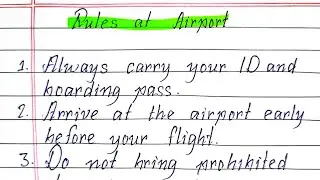 Rules at Airport
1. Always carry your ID and
boarding pass.
2. Arrive at the airport early
before your flight.
3. Do not bring prohibited